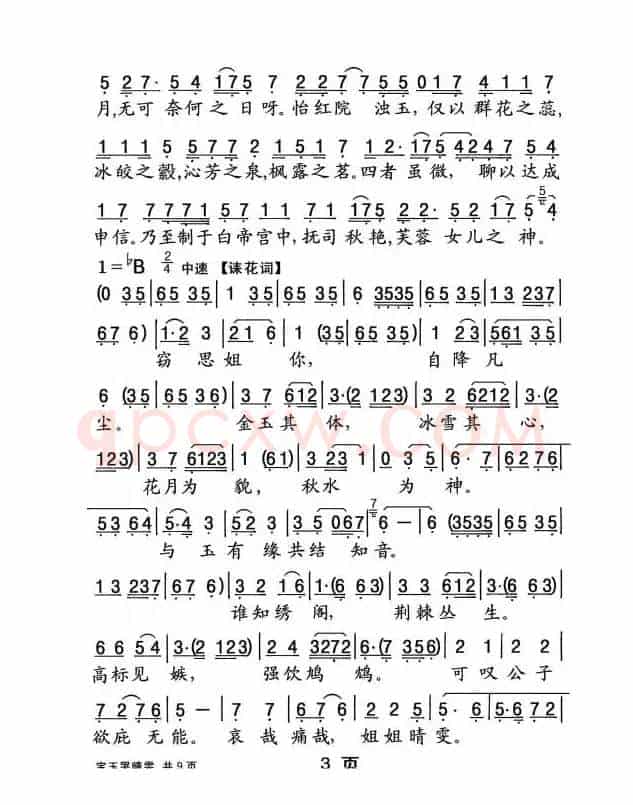 5 2 7· 5 4 1 7 5 7 2 2 7 7 5 5 0 1 7 4 1 1 7
月,无可 奈何之 日呀。怡红院 浊玉, 仅以 群花之蕊,
1 1 1 5 5 7 7 2 1 5 1 7 1 2· 1 7 5 4 2 4 7 5 4
冰皎之縠,沁芳之泉,枫露之茗。四者 虽微, 聊以达成
1 7 7 7 7 1 5 7 1 1 7 1 1 7 5 2 2· 5 2 1 7 5 5 4
申信。乃至制于白帝宫中,抚司秋艳,芙蓉 女儿之 神。
1=♭B 2/4 中速 【诔花词】
(0 3 5|6 5 3 5|1 3 5|6 5 3 5|6 3535|6 5 3 5|1 3 237|
6 7 6)|1·2 3|2 1 6|1 (3 5|6 5 3 5)|1 2 3|5 6 1 3 5|
窃思姐 你, 自降凡
6 (3 5|6 5 3 6)|3 7 6 1 2|3·(2 1 2 3)|3 2 6 2 1 2|3·(2
尘。 金玉其 体, 冰雪其 心,
1 2 3)|3 7 6 1 2 3|1 (6 1)|3 2 3 1|0 3 5|6· 7|6 2 7 6|
花月为 貌, 秋水 为 神。
5 3 6 4|5·4 3|5 2 3|3 5 0 6 7|7 6 –|6 (3535|6 5 3 5|
与 玉有 缘共结 知音。
1 3 237|6 7 6)|3 2 1 6|1·(6 6 3)|3 3 6 1 2|3·(6 6 3)|
谁知绣 阁, 荆棘丛 生。
6 6 5 4|3·(2 1 2 3)|2 4 3 2 7 2|6·(7 3 5 6)|2 1|2 2|
高标见 嫉, 强饮鸠 鸩。 可叹公子
7 2 7 6|5 –|7 7|6 7 6|2 2|7 2|5· 6 7|5· 6 7|
欲庇 无能。 哀 哉 痛哉, 姐姐晴 雯。
宝玉哭晴雯 共9页 3 页
qpcxw.COM